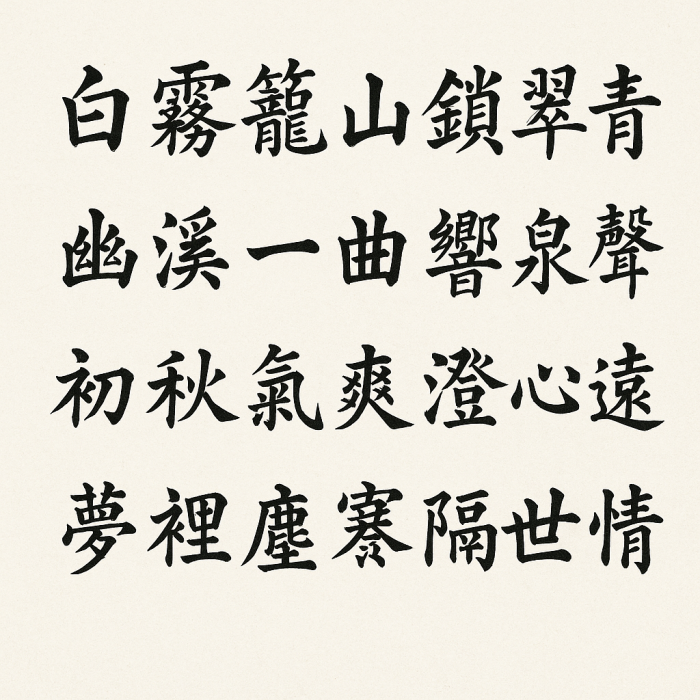 白霧籠山鎖翠青
幽溪一曲響泉聲
初秋氣爽澄心遠
夢裡塵寒隔世情